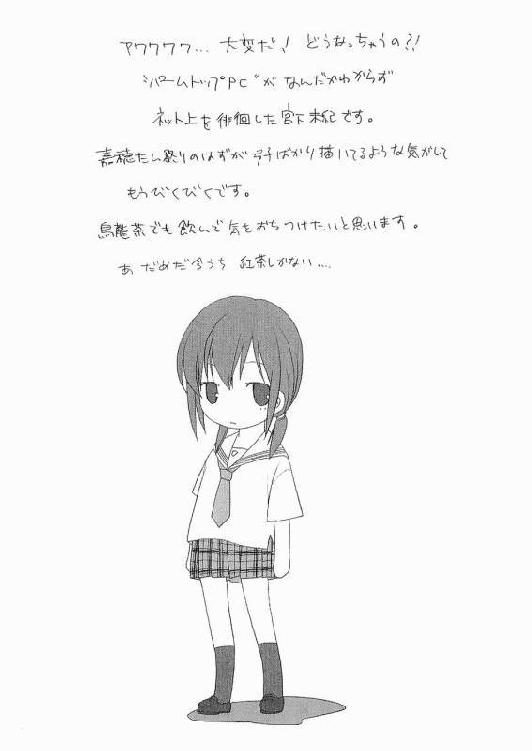 アワワワワ… 大変だ! どうなっちゃうの?!
"パームトップPC"がなんだかわからず
ネット上を徘徊した宮下未紀です。
嘉穂たん祭りのはずが 子ばかり描いてるような気がして
もうびくびくです。
烏龍茶でも飲んで気をおちつけたいと思います。
あ だめだ今うち 紅茶しかない…